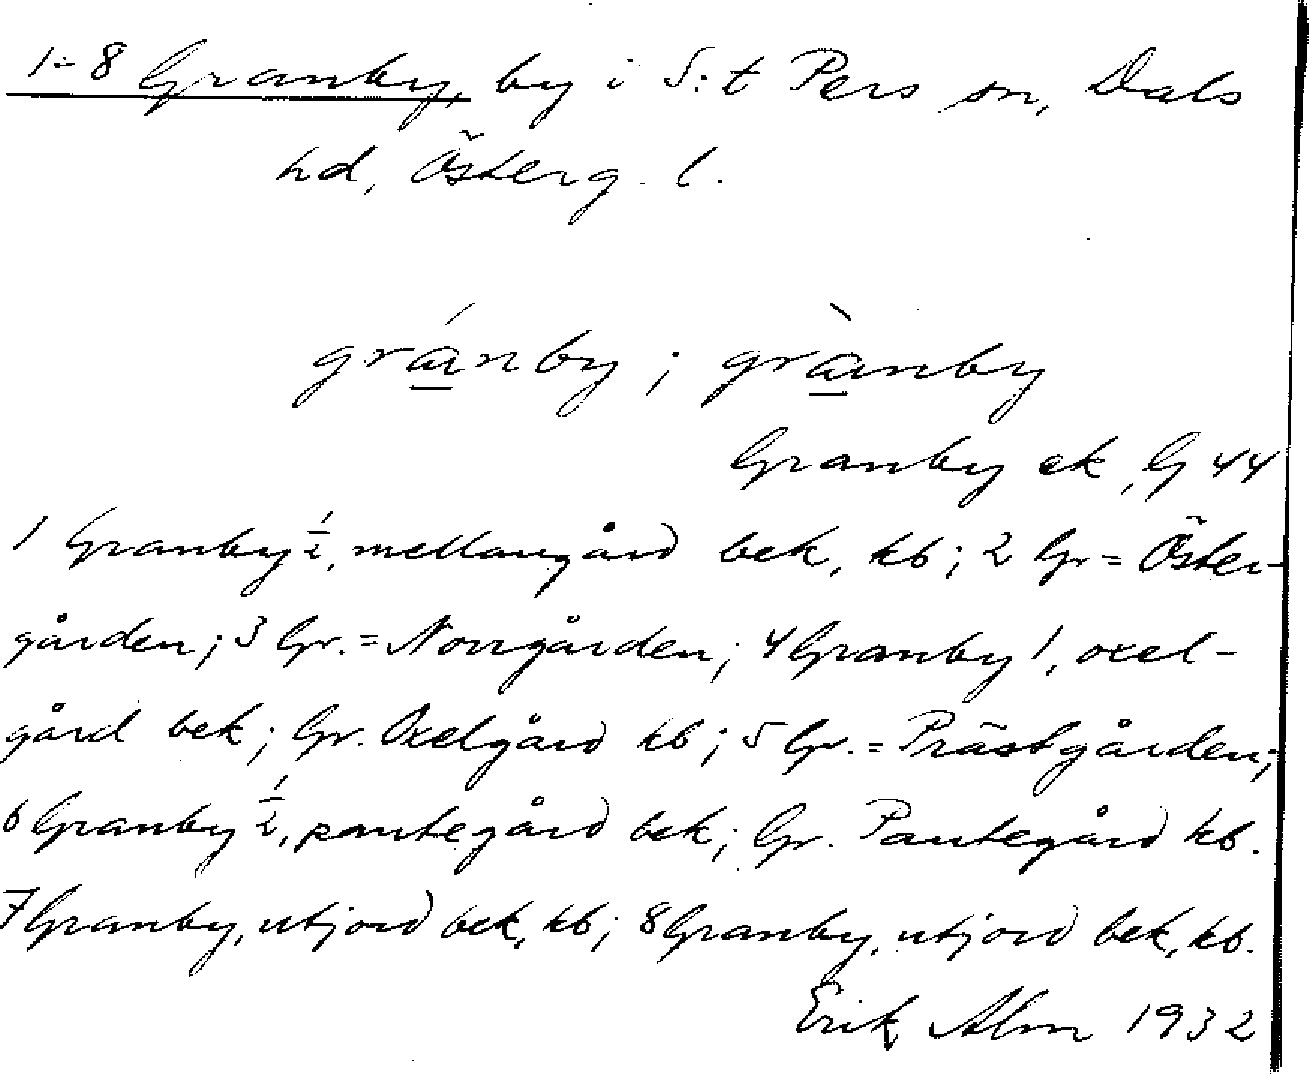 1-8 Granby, by i S:t Pers sn, Dals
hd, Österg. l.
gránby ; grànby
Granby ek, G 44
1 Granby ½, mellangård bek, kb; 2 Gr = Öster-
gården; 3 Gr. = Norrgården; 4 Granby 1, oxel-
gård bek; Gr. Oxelgård kb; 5 Gr. = Prästgården;
6 Granby ½, pantegård bek; Gr. Pantegård kb.
7 Granby, utjord bek, kb; 8 Granby, utjord bek, kb.
Erik Alm 1932